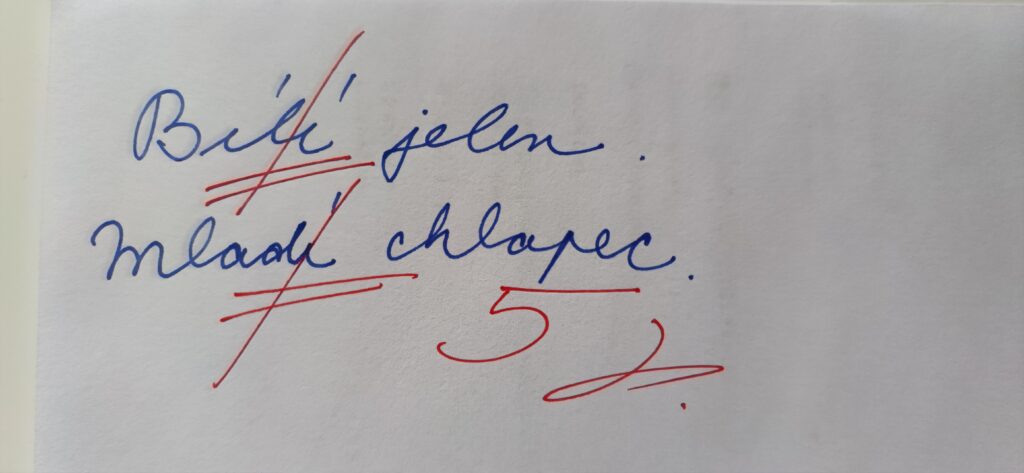 Bílí jelen.
Mladí chlapec.
5